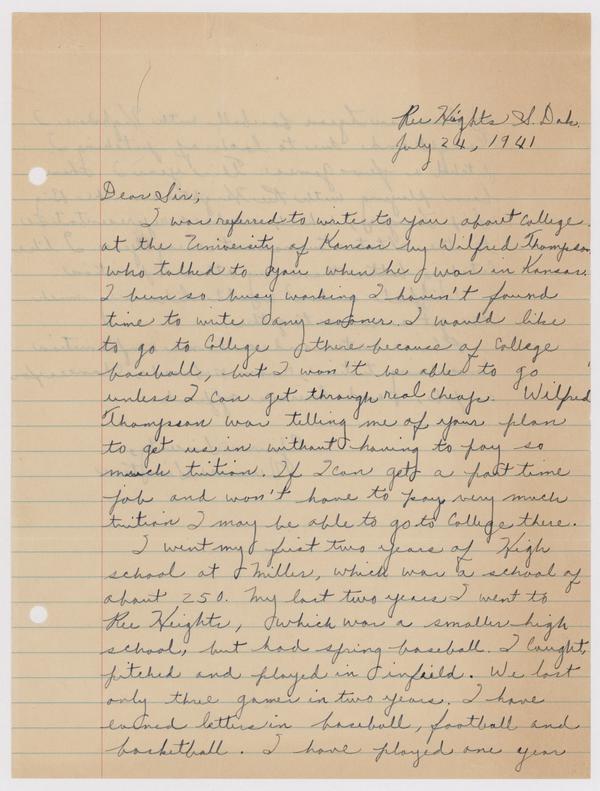 Ree Heights S. Dak.
July 24, 1941
Dear Sir;
I was referred to write to you about College
at the University of Kansas by Wilfred Thompson
who talked to you when he was in Kansas.
I been so busy working I haven't found
time to write any sooner. I would like
to go to College there because of College
baseball, but I won't be able to go
unless I can get through real cheap. Wilfred
Thompson was telling me of your plan
to get us in without having to pay so
much tuition. If I can get a part time
job and won't have to pay very much
tuition I may be able to go to College there.
I went my first two years of High
school at Miller, which was a school of
about 250. My last two years I went to
Ree Heights, which was a smaller high
school, but had spring baseball. I caught,
pitched and played in infeild. We lost
only three games in two years. I have
earned letters in baseball, football and
basketball. I have played one year